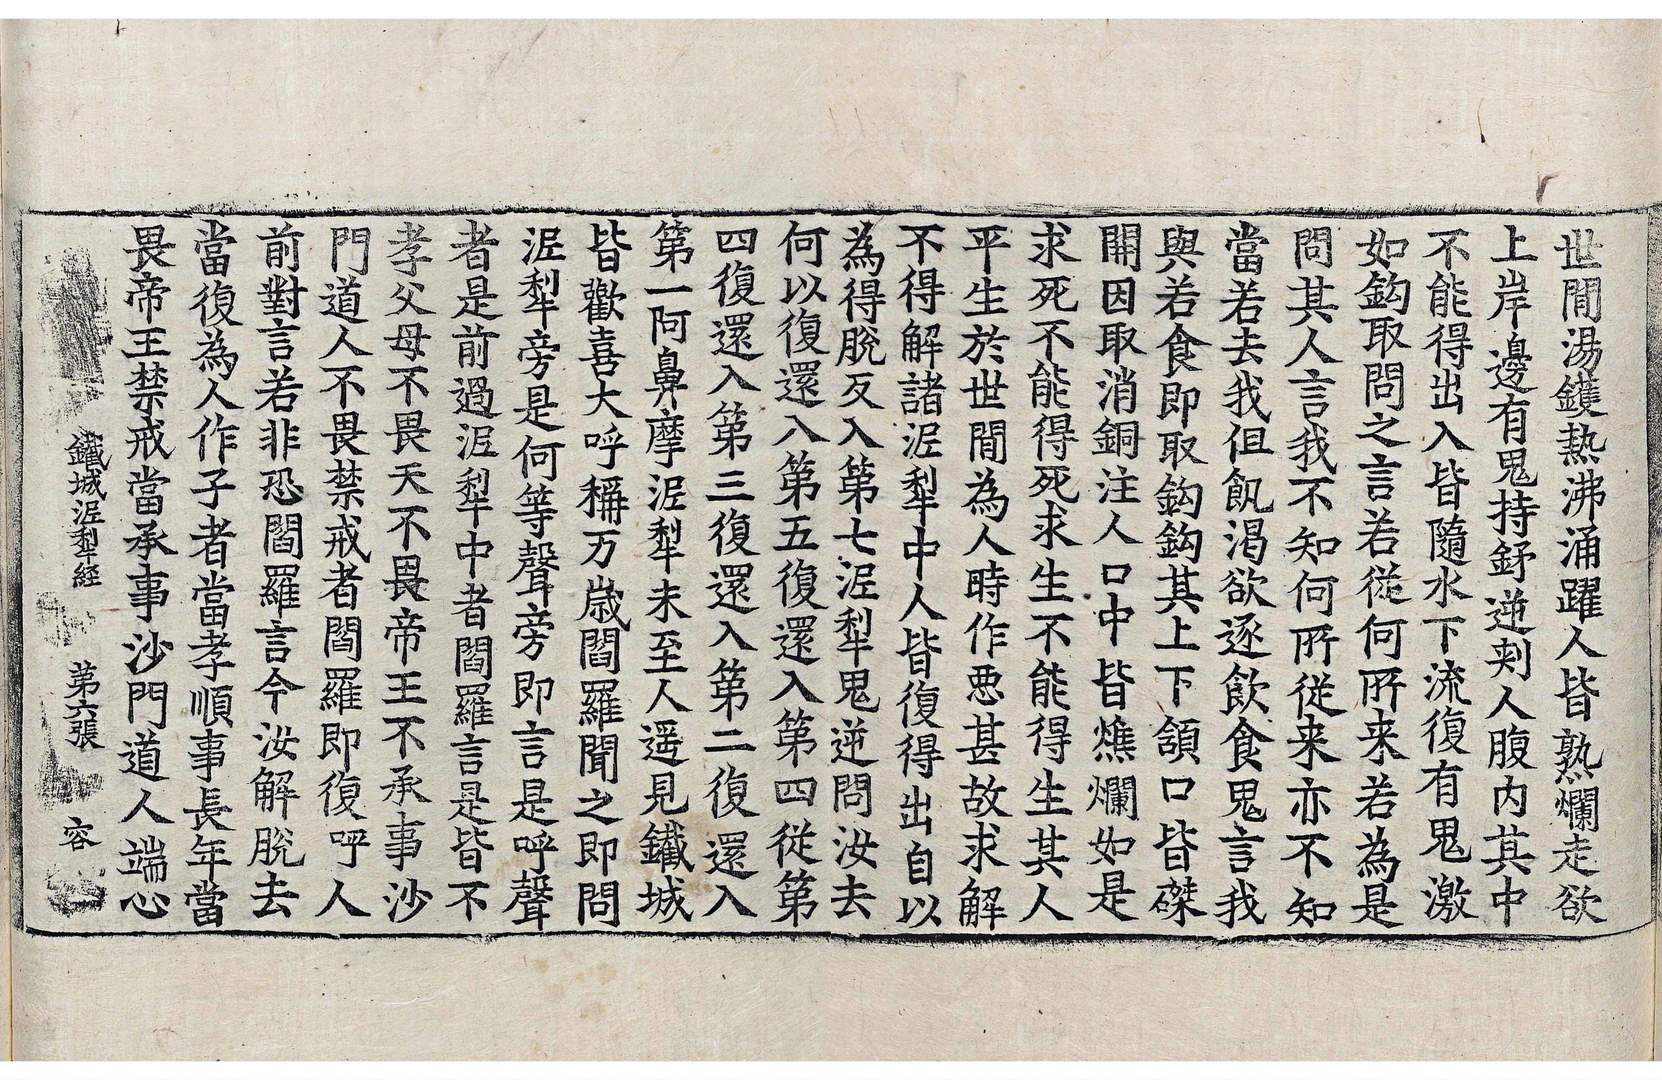 世間湯鑊熱沸涌躍人皆熟爛走欲
上岸邊有鬼持釾逆刾人腹内其中
不能得出入皆隨水下流復有鬼激
如鈎取問之言若従何所来若為是
問其人言我不知何所従来亦不知
當若去我但飢渴欲逐飲食鬼言我
與若食即取鈎鈎其上下頷口皆磔
開因取消銅注人口中皆燋爛如是
求死不能得死求生不能得生其人
平生於世間為人時作悪甚故求解
不得解諸泥犁中人皆復得出自以
為得脫反入第七泥犁鬼逆問汝去
何以復還入第五復還入第四従第
四復還入第三復還入第二復還入
第一阿鼻摩泥犁未至人遥見鐵城
皆歡喜大呼稱万歳閻羅聞之即問
泥犁旁是何等聲旁即言是呼聲
者是前過泥犁中者閻羅言是皆不
孝父母不畏天不畏帝王不承事沙
門道人不畏禁戒者閻羅即復呼人
前對言若非恐閻羅言今汝解脫去
當復為人作子者當孝順事長年當
畏帝王禁戒當承事沙門道人端心
鐵城泥犁経 第六張 容